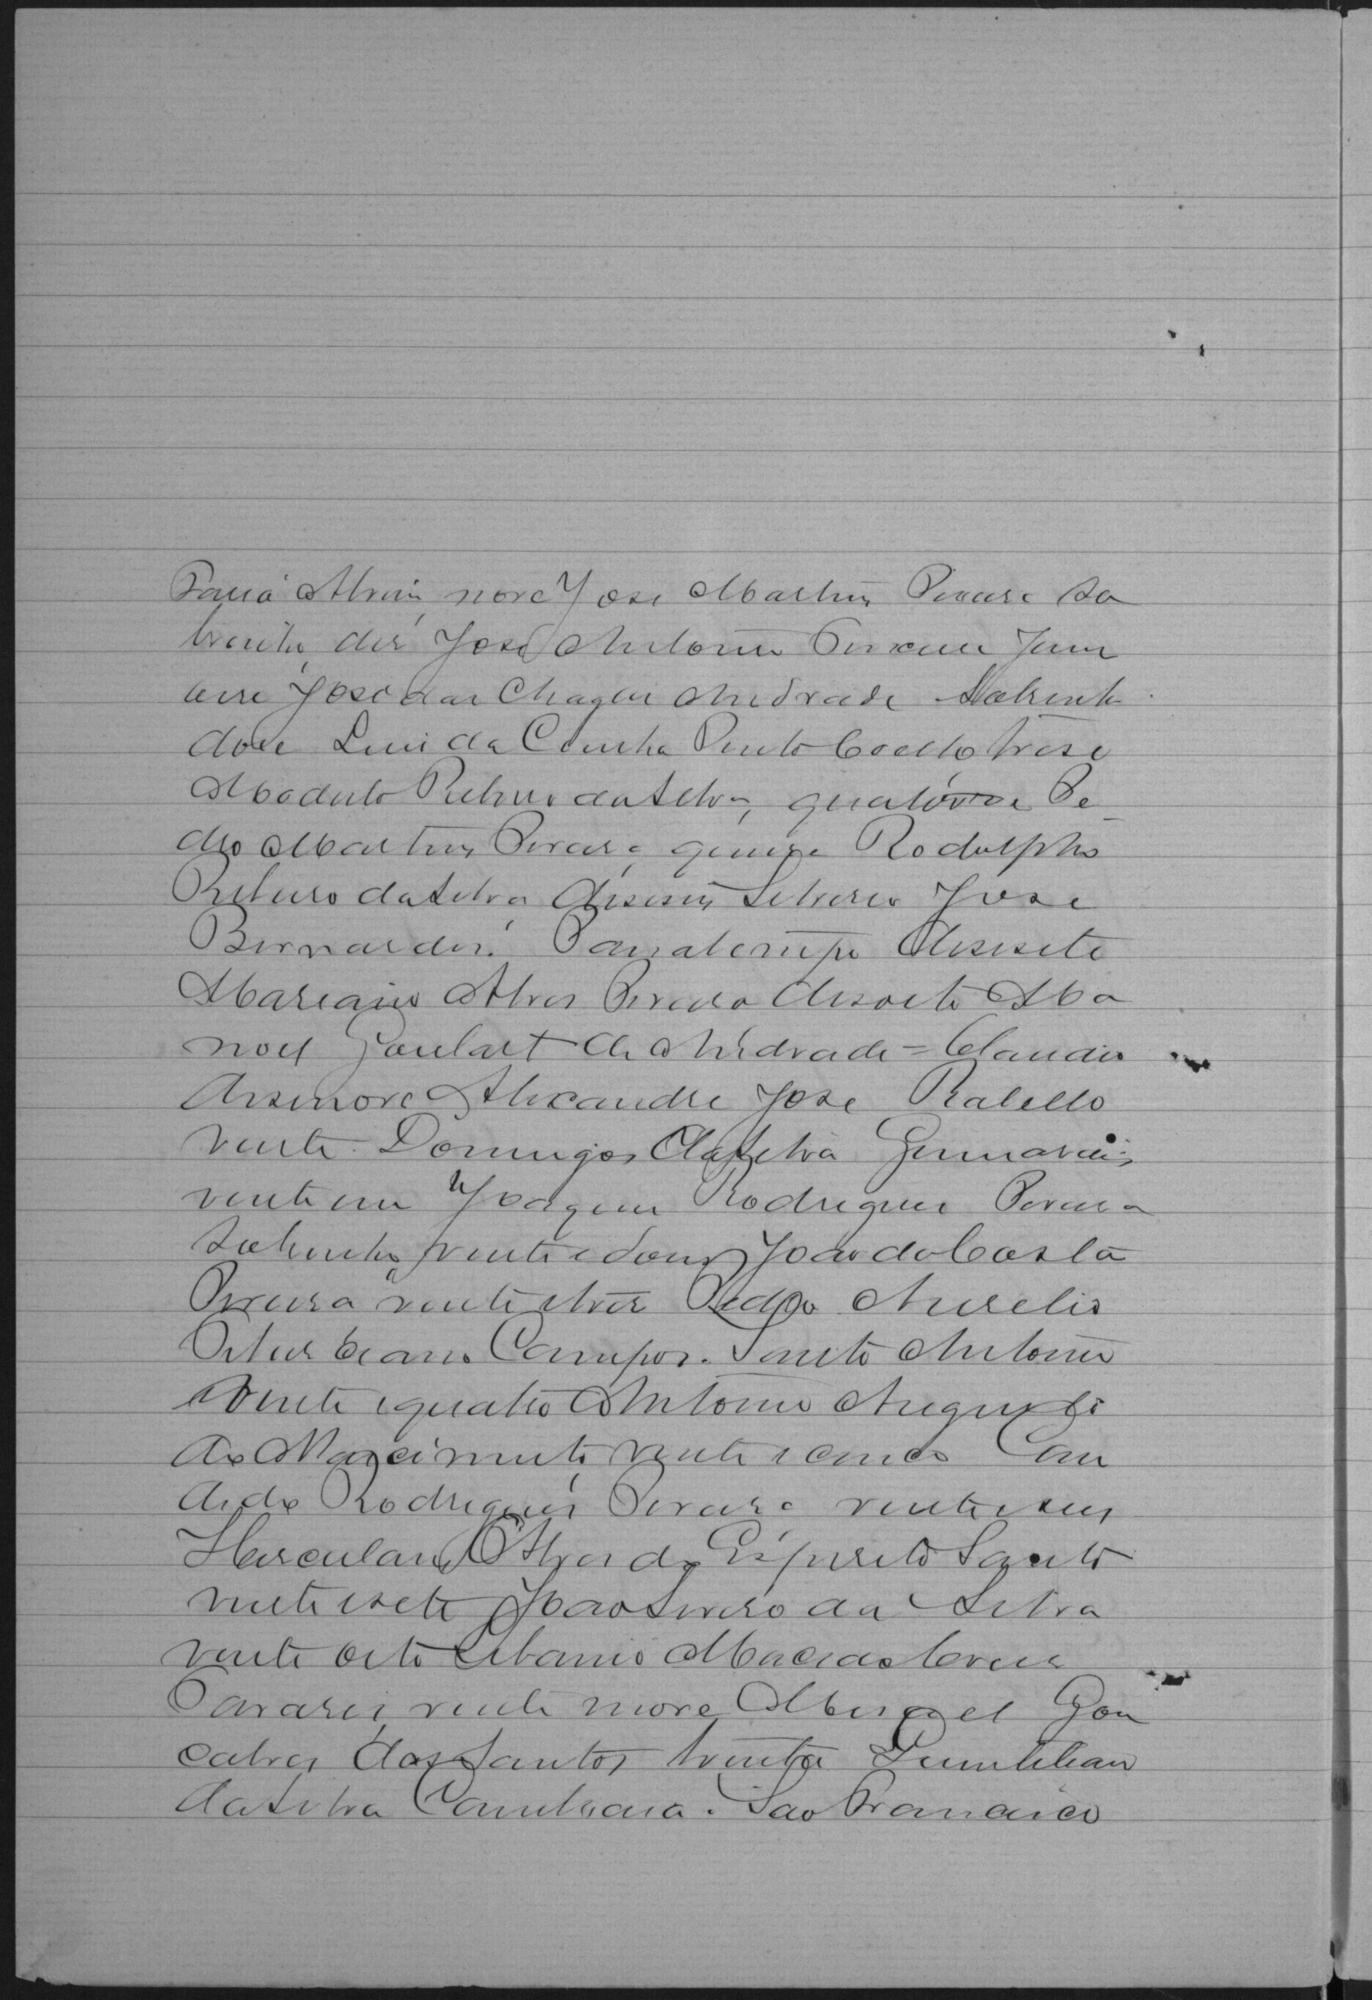 Faria Alvim, nove José Martins Pereira So
brinho, dez José Antonio Ferreira Jun
ior José das Chagas Andrade Sobrinho
doze Luis da Cunha Pinto Coelho treze
Modesto Ribeiro da Silva, quatorze Pe
dro Martins Pereira, quinze Rodolpho
Ribeiro da Silva deseseis Silverio José
Bernardes. Paratempo desesete
Mariano Alves Pereira desoito Ma
noel Goulart de Andrade = Claudio
desenove Alexandre José Rabello
vinte Domingos da Silva Guimarães
vinte um Joaquim Rodrigues Pereira
Sobrinho, vinte e dous João da Costa
Pereira vinte e tres Pedro Aurelio
Campos. Santo Antonio
vinte e quatro Antonio Augusto
do Nascimento, vinte e cinco Can
dido Rodrigues Pereira vinte e seis
Herculano Alves do Espirito Santo
vinte e sete João Severo da Silva
vinte oito Libanio
Tavares, vinte nove Miguel Gon
calves dos Santos trinta Quintiliano
da Silva Cambraia. São Francisco